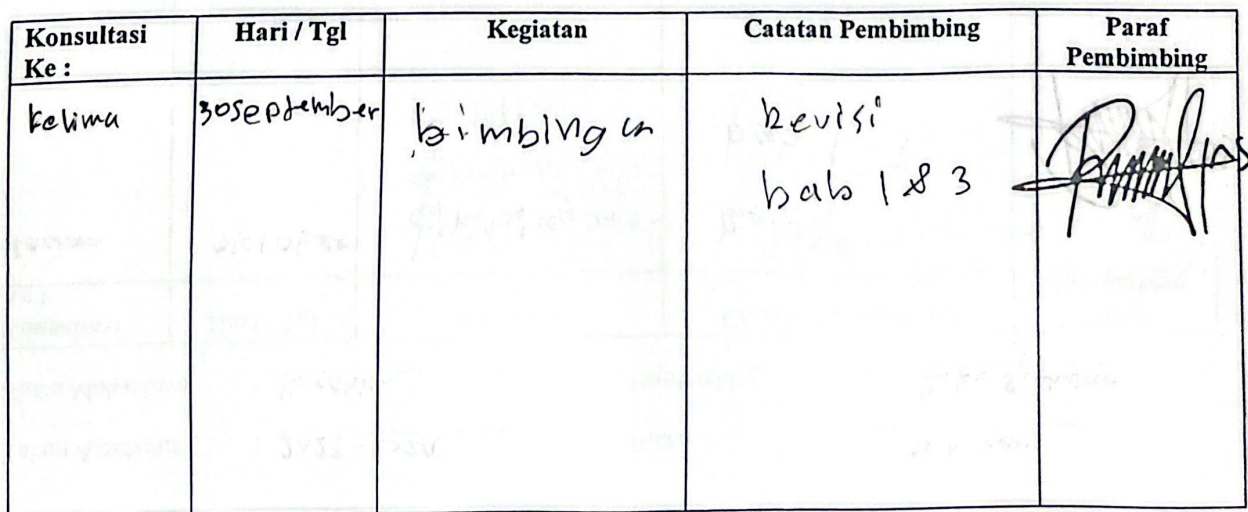 Konsultasi Ke :
Hari / Tgl
Kegiatan
Catatan Pembimbing
Paraf Pembimbing
kelima
30 September
bimbingan
Revisi
bab 1 & 3